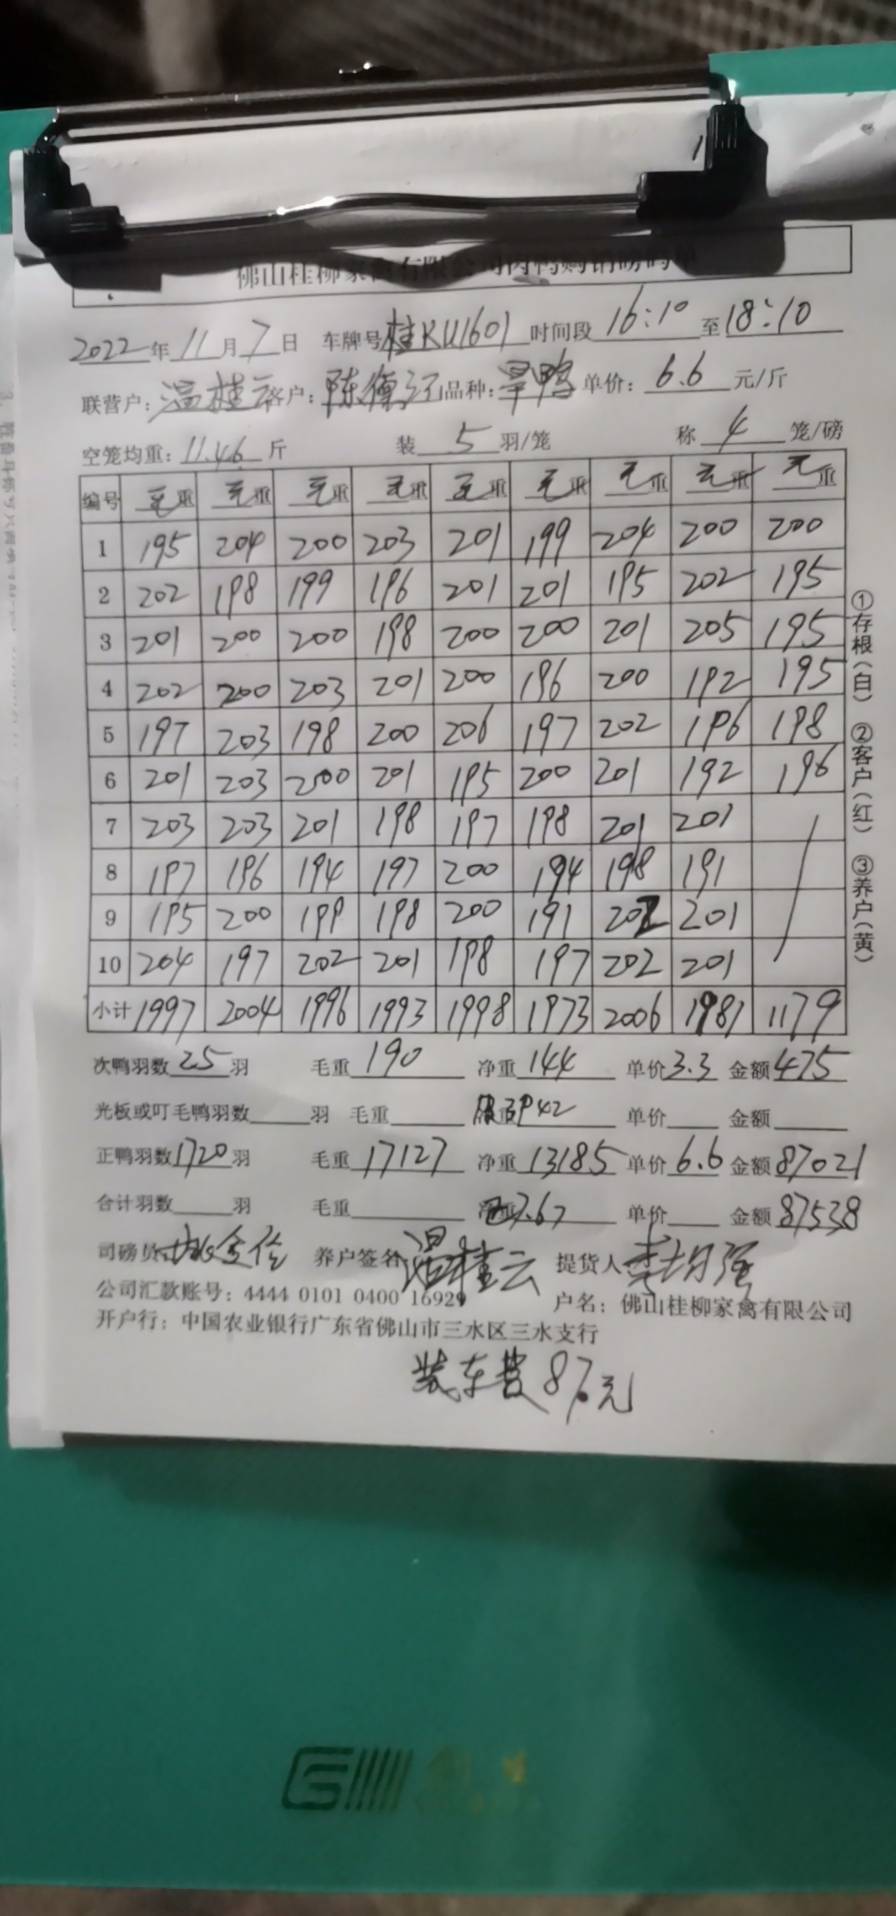 佛山桂柳家禽有限公司肉鸭购销磅码单
2022年11月7日 车牌号桂KU1601时间段16:10至18:10
联营户:温桂云客户:陈德江品种:旱鸭单价:6.6元/斤
空笼均重:11.46斤 装5羽/笼 称4笼/磅
编号 毛重 毛重 毛重 毛重 毛重 毛重 毛重 毛重 毛重
1 195 204 200 203 201 199 204 200 200
2 202 198 199 196 201 201 195 202 195
3 201 200 200 198 200 200 201 205 195
4 202 200 203 201 200 196 200 192 195
5 197 203 198 200 206 197 202 196 198
6 201 203 200 201 195 200 201 192 196
7 203 203 201 198 197 198 201 201
8 197 196 194 197 200 194 198 191
9 195 200 199 198 200 191 202 201
10 204 197 202 201 198 197 202 201
小计 1997 2004 1996 1993 1998 1973 2006 1981 1179
次鸭羽数25羽 毛重190 净重144 单价3.3 金额475
光板或叮毛鸭羽数 羽 毛重 42 单价 金额
正鸭羽数1720羽 毛重17127 净重13185 单价6.6 金额87021
合计羽数 羽 毛重 7.67 单价 金额87538
司磅员 养户签名温桂云 提货人李均强
公司汇款账号:4444 0101 0400 16929 户名:佛山桂柳家禽有限公司
开户行:中国农业银行广东省佛山市三水区三水支行
装车费87元
①存根(白) ②客户(红) ③养户(黄)